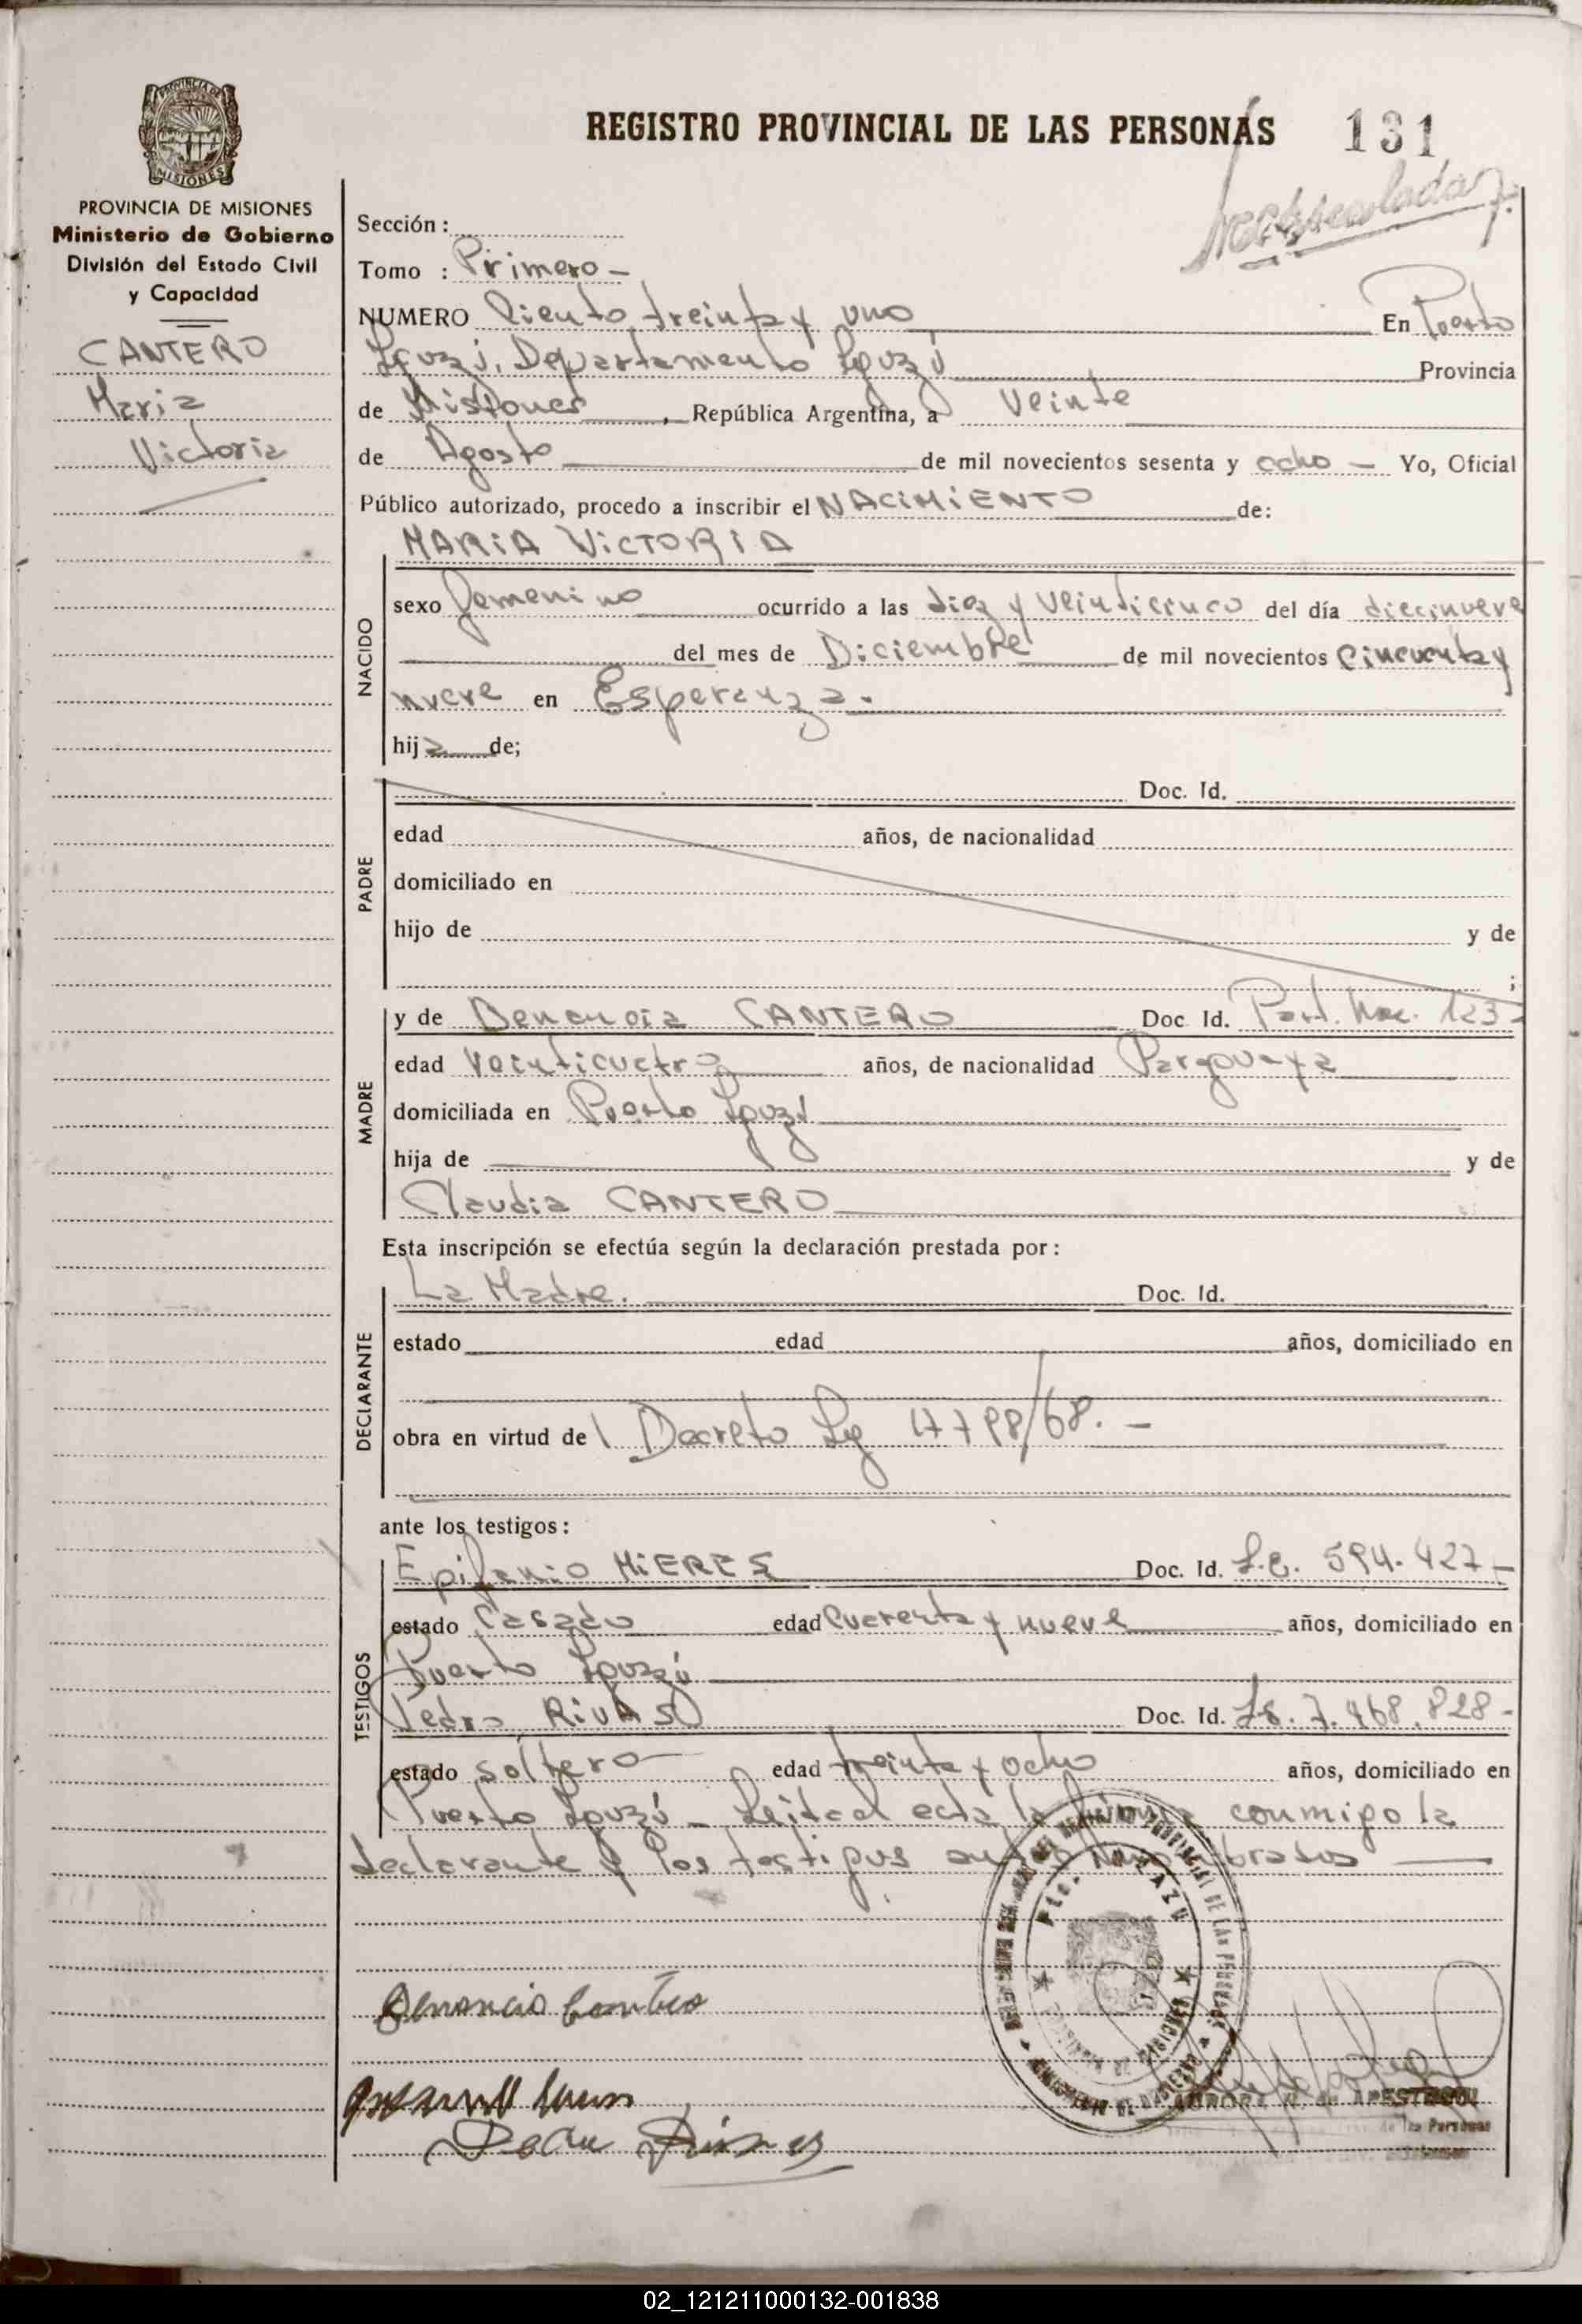 REGISTRO PROVINCIAL DE LAS PERSONAS 131
PROVINCIA DE MISIONES
PROVINCIA DE MISIONES
Ministerio de Gobierno
División del Estado Civil
y Capacidad
CANTERO
Maria
Victoria
Sección:
Tomo : Primero -
NUMERO Ciento treinta y uno En Puerto
Iguazú, Departamento Iguazú Provincia
de Misiones, República Argentina, a Veinte
de Agosto de mil novecientos sesenta y ocho - Yo, Oficial
Público autorizado, procedo a inscribir el NACIMIENTO de:
MARIA VICTORIA
NACIDO
sexo femenino ocurrido a las diez y veinticinco del día diecinueve
del mes de Diciembre de mil novecientos Cincuenta y
nueve en Esperanza.
hija de;
PADRE
Doc. Id.
edad años, de nacionalidad
domiciliado en
hijo de y de
;
MADRE
y de Benancia CANTERO Doc Id. Part. Nac. 123-
edad veinticuatro años, de nacionalidad Paraguaya
domiciliada en Puerto Iguazú
hija de y de
Claudia CANTERO
Esta inscripción se efectúa según la declaración prestada por:
DECLARANTE
La Madre. Doc. Id.
estado edad años, domiciliado en
obra en virtud de Decreto Ley 17798/68. -
ante los testigos:
TESTIGOS
Epifanio MIERES Doc. Id. L.E. 594.427-
estado Casado edad Cuarenta y nueve años, domiciliado en
Puerto Iguazú
Pedro RIVAS Doc. Id. 7.468.828-
estado soltero edad treinta y ocho años, domiciliado en
Puerto Iguazú - Leida el acta la firma conmigo la
declarante y los testigos antes nombrados
MINISTERIO DE GOBIERNO
PROVINCIA DE MISIONES
AURORA de ARESTEGUI
de las Personas
02_121211000132-001838